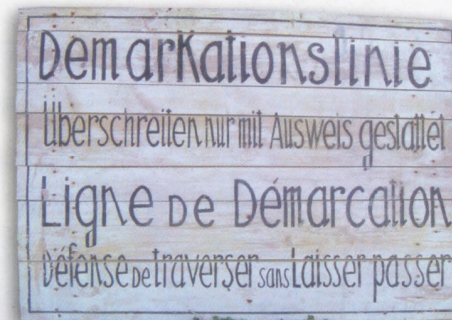 Demarkationslinie
Überschreiten nur mit Ausweis gestattet
Ligne de Démarcation
Défense de traverser sans Laisser passer